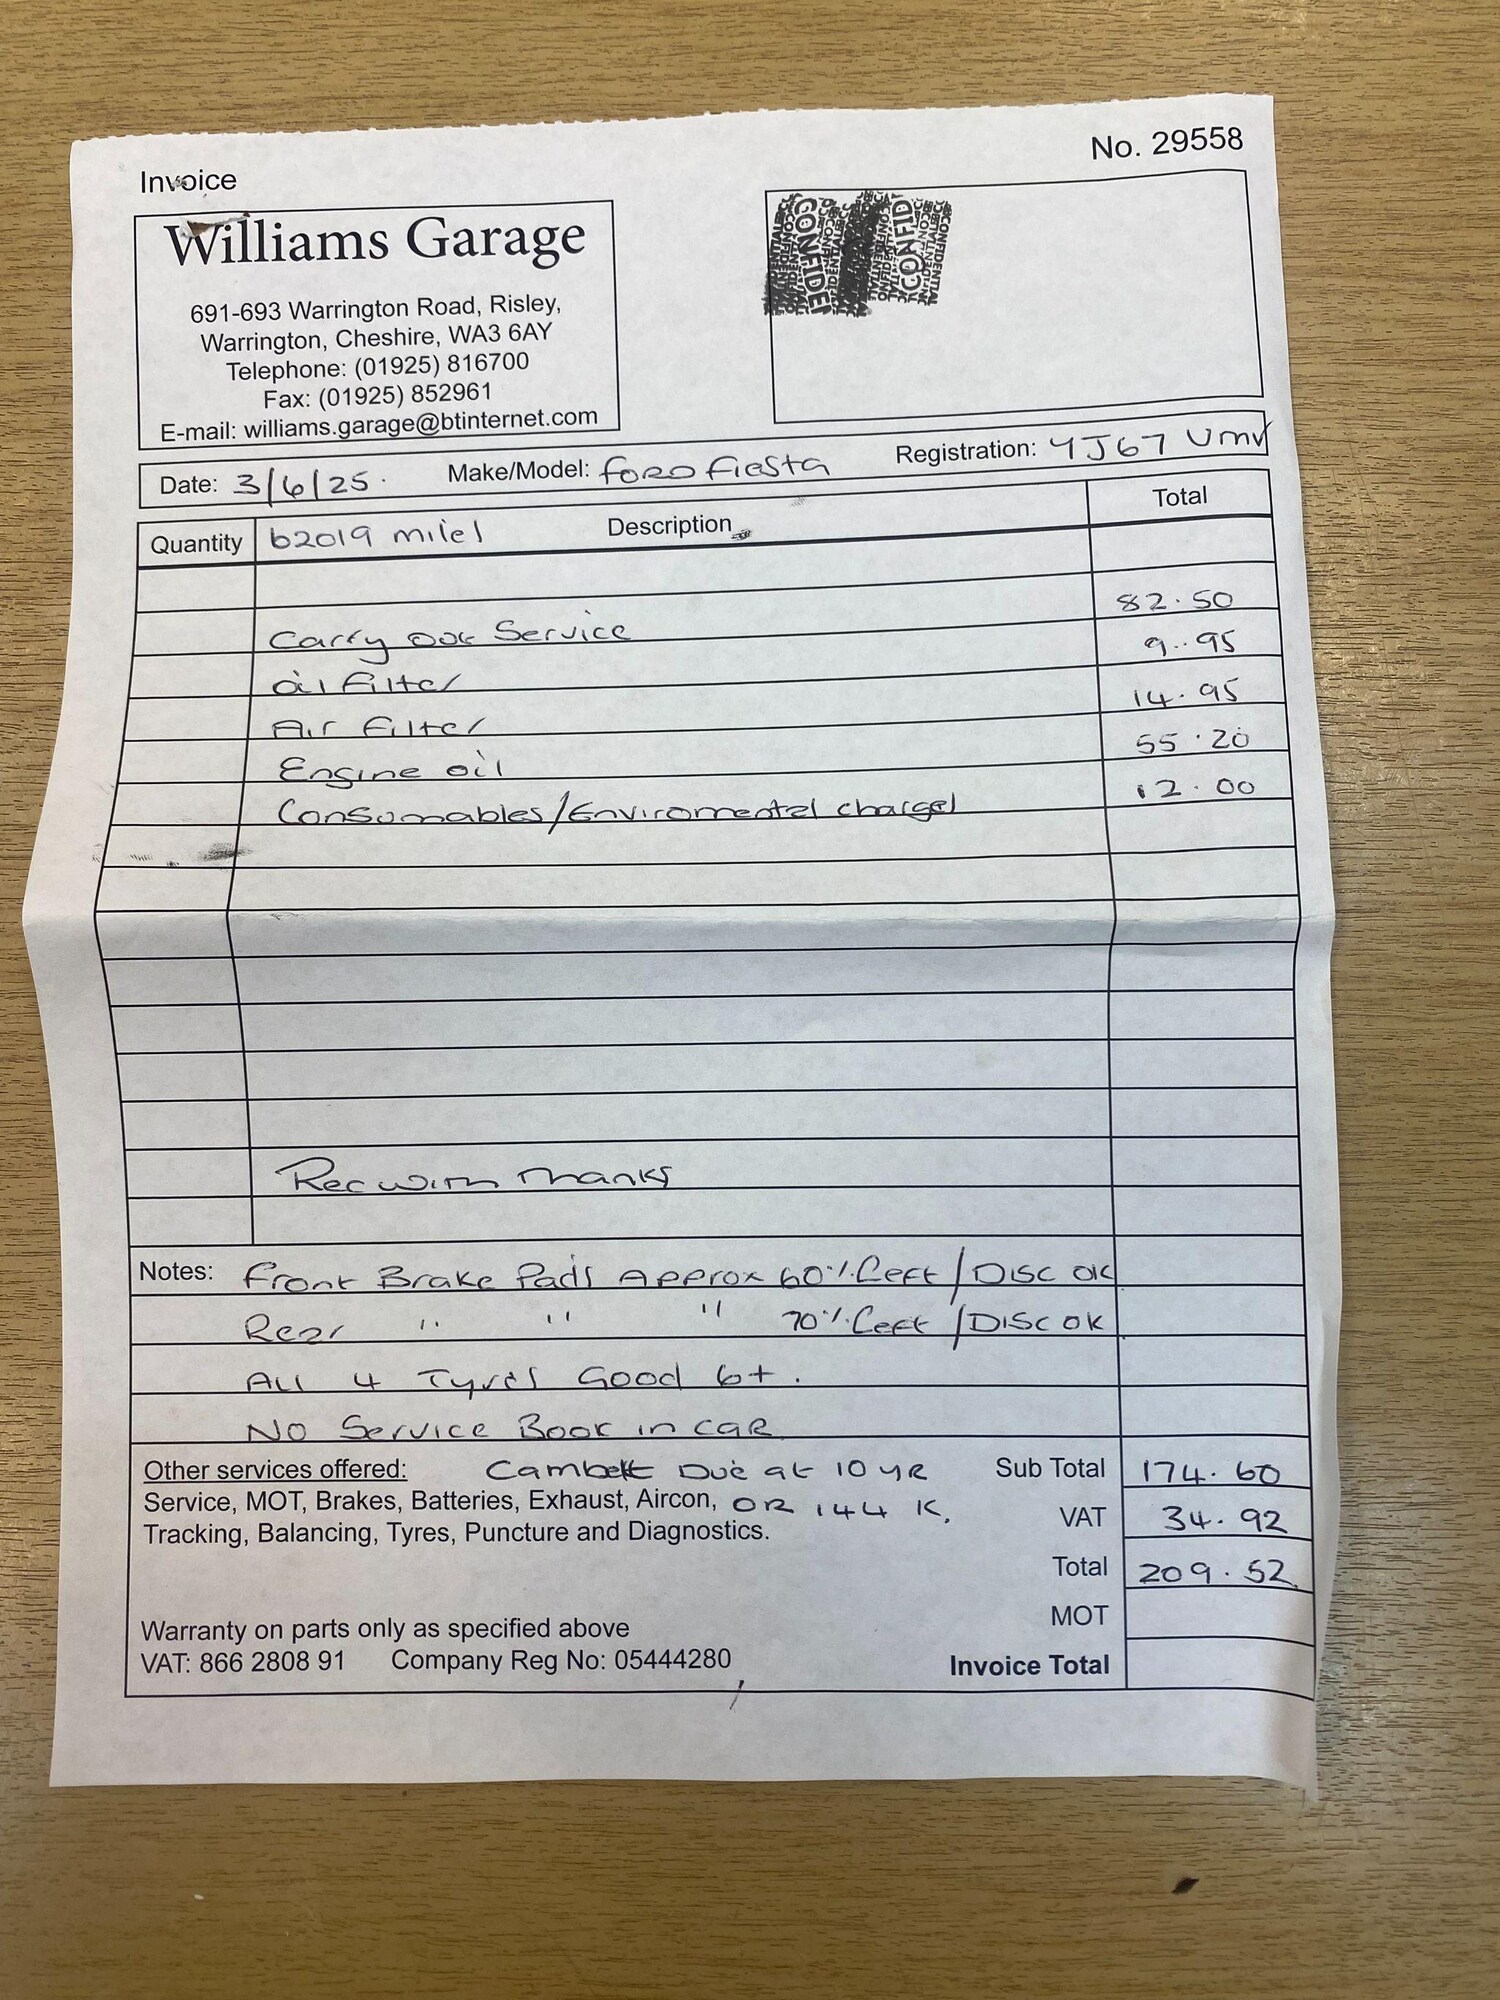 No. 29558
Invoice
Williams Garage
691-693 Warrington Road, Risley,
Warrington, Cheshire, WA3 6AY
Telephone: (01925) 816700
Fax: (01925) 852961
E-mail: williams.garage@btinternet.com
CONFIDE CONFID
Date: 3/6/25. Make/Model: Ford Fiesta Registration: YJ67 Umv
Quantity 62019 miles Description Total
Carry out Service 82.50
Oil Filter 9.95
Air Filter 14.95
Engine oil 55.20
Consumables/Enviromental charges 12.00
Rec with Thanks
Notes: Front Brake Pads Approx 60% Left / Disc OK
Rear " " " 70% Left / DISC OK
All 4 Tyres Good 6+.
No Service Book in car
Other services offered: Cambelt Due at 10 YR Sub Total 174.60
Service, MOT, Brakes, Batteries, Exhaust, Aircon, OR 144 K. VAT 34.92
Tracking, Balancing, Tyres, Puncture and Diagnostics.
Total 209.52
MOT
Warranty on parts only as specified above
VAT: 866 2808 91 Company Reg No: 05444280 Invoice Total